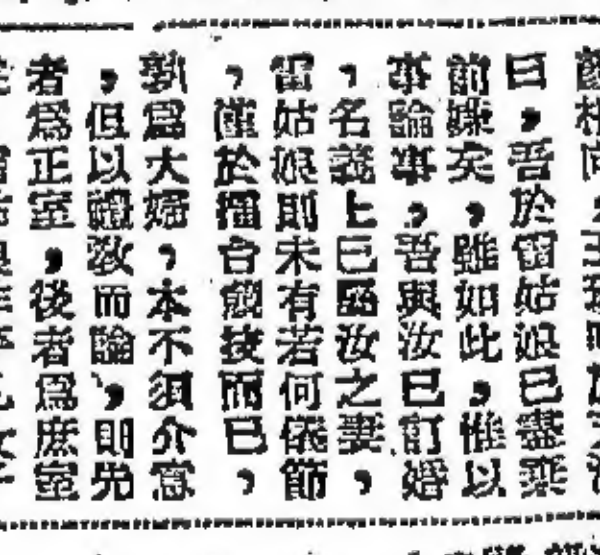 曰，吾於雷姑娘已盡棄
前嫌矣，雖如此，惟以
事論事，吾與汝已訂婚
，名義上已屬汝之妻，
雷姑娘則未有若何儀節
，僅於擂台競技而已，
爲大婦，本不須介意
，但以禮敎而論，則先
者爲正室，後者爲庶室